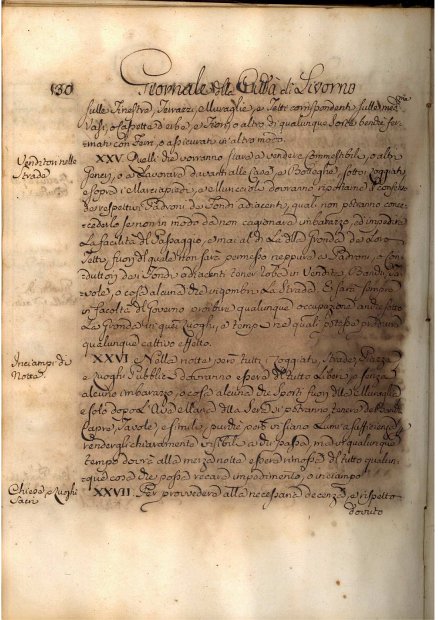 130 Giornale della Città di Livorno
sulle Finestre, Terrazzi, Muraglie, e Tetti corrispondenti sulle med.me
Vasi, o Cassette d'erbe, e Fiori, o altro di qualunque sorte benche fer-
mati con Ferri, o assicurati in altro modo.
Venditori nelle
Strade
XXV. Quelli che vorranno stare a vendere Commestibili, o altri
Generi, o a Lavorare davanti alle Case, e Botteghe, sotto i Loggiati
e sopra i Marciapiedi, e Muricciuoli dovranno riportarne il consenso
de respettivi Padroni de Fondi adiacenti, quali non potranno conce-
cederlo se non in modo da non cagionare imbarazzo, ad impedire
la facilità del Passaggio, e mai al di là della Gronda de Loro
Tetti, fuori di quale Non sarà permesso neppure a Padroni, o Con-
duttori dei Fondi adiacenti tener robe in Vendita, Banchi, Ta-
vole, o cosa alcuna che ingombri la Strada. E sarà sempre
in facoltà del Governo proibire qualunque occupazione anche sotto
la Gronda in quei Luoghi, e tempo ne quali potesse produrre
qualunque cattivo effetto.
Inciampi di
Notte.
XXVI. Nella notte però tutti i Loggiati, Strade, Piazze
e Luoghi Pubblici dovranno essere del tutto Liberi, e senza
alcuno imbarazzo, o cosa alcuna che sporti fuori della Muraglia
e solo dopo l'Ave Maria della Sera si potranno tenere de Banchi
Capre, Tavole, e simili, purche però vi siano Lumi a sufficienza
rendersi chiaramente visibili a chi passa, ma in qualunque
tempo dovrà alla mezza notte essere rimossa del tutto qualun-
que cosa che possa recare impedimento, o inciampo.
Chiese, e Luoghi
Sacri
XXVII. Per provvedere alla necessaria decenza, e rispetto
dovuto